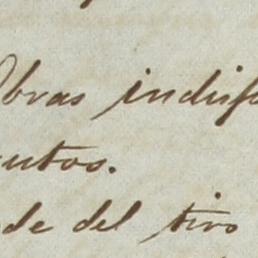 Obras indisp
entos.
de del tiro